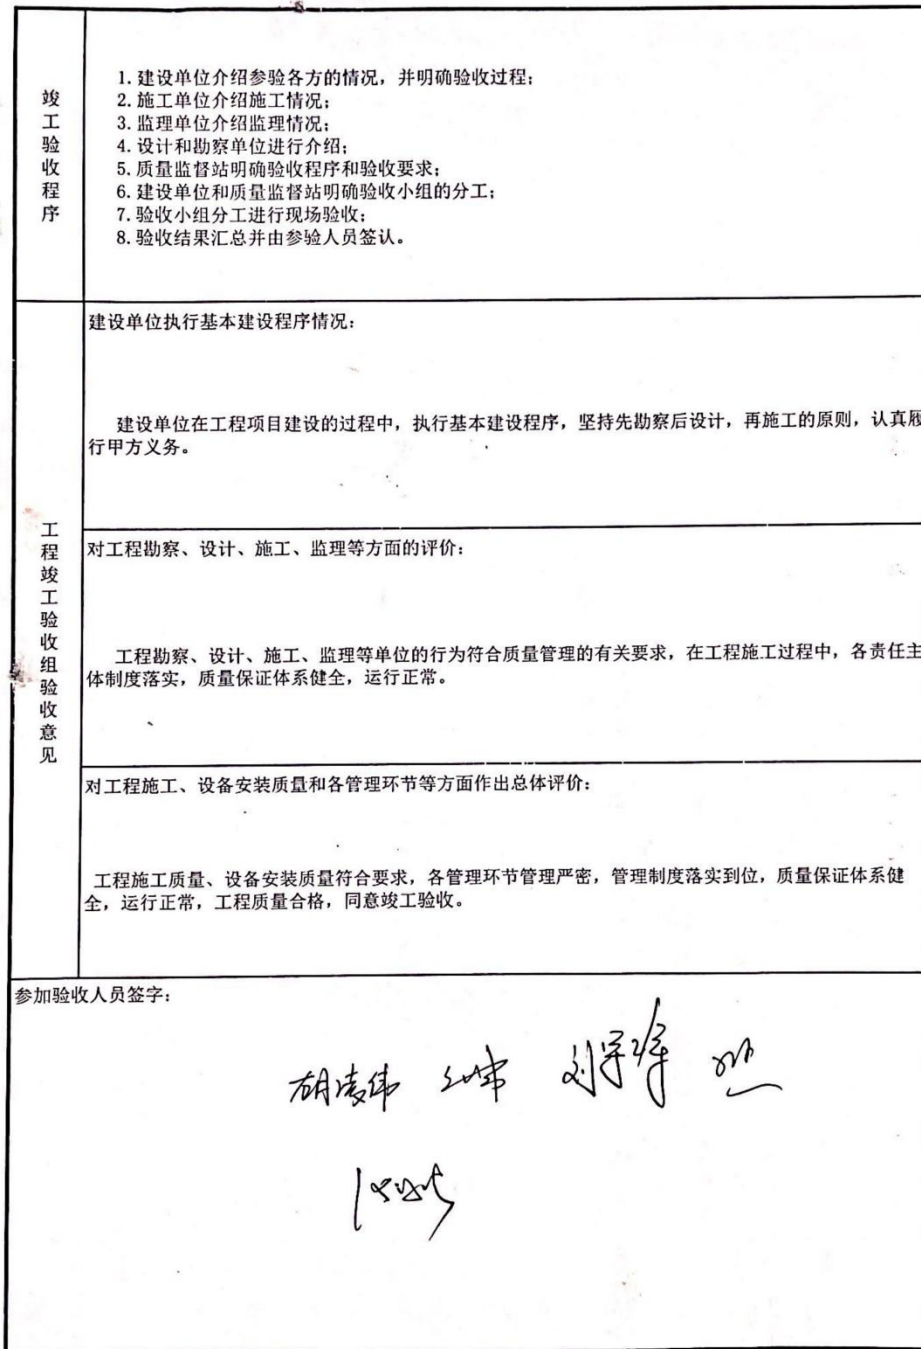 竣工验收程序
1. 建设单位介绍参验各方的情况，并明确验收过程；
2. 施工单位介绍施工情况；
3. 监理单位介绍监理情况；
4. 设计和勘察单位进行介绍；
5. 质量监督站明确验收程序和验收要求；
6. 建设单位和质量监督站明确验收小组的分工；
7. 验收小组分工进行现场验收；
8. 验收结果汇总并由参验人员签认。
工程竣工验收组验收意见
建设单位执行基本建设程序情况：
建设单位在工程项目建设的过程中，执行基本建设程序，坚持先勘察后设计，再施工的原则，认真履
行甲方义务。
对工程勘察、设计、施工、监理等方面的评价：
工程勘察、设计、施工、监理等单位的行为符合质量管理的有关要求，在工程施工过程中，各责任主
体制度落实，质量保证体系健全，运行正常。
对工程施工、设备安装质量和各管理环节等方面作出总体评价：
工程施工质量、设备安装质量符合要求，各管理环节管理严密，管理制度落实到位，质量保证体系健
全，运行正常，工程质量合格，同意竣工验收。
参加验收人员签字：